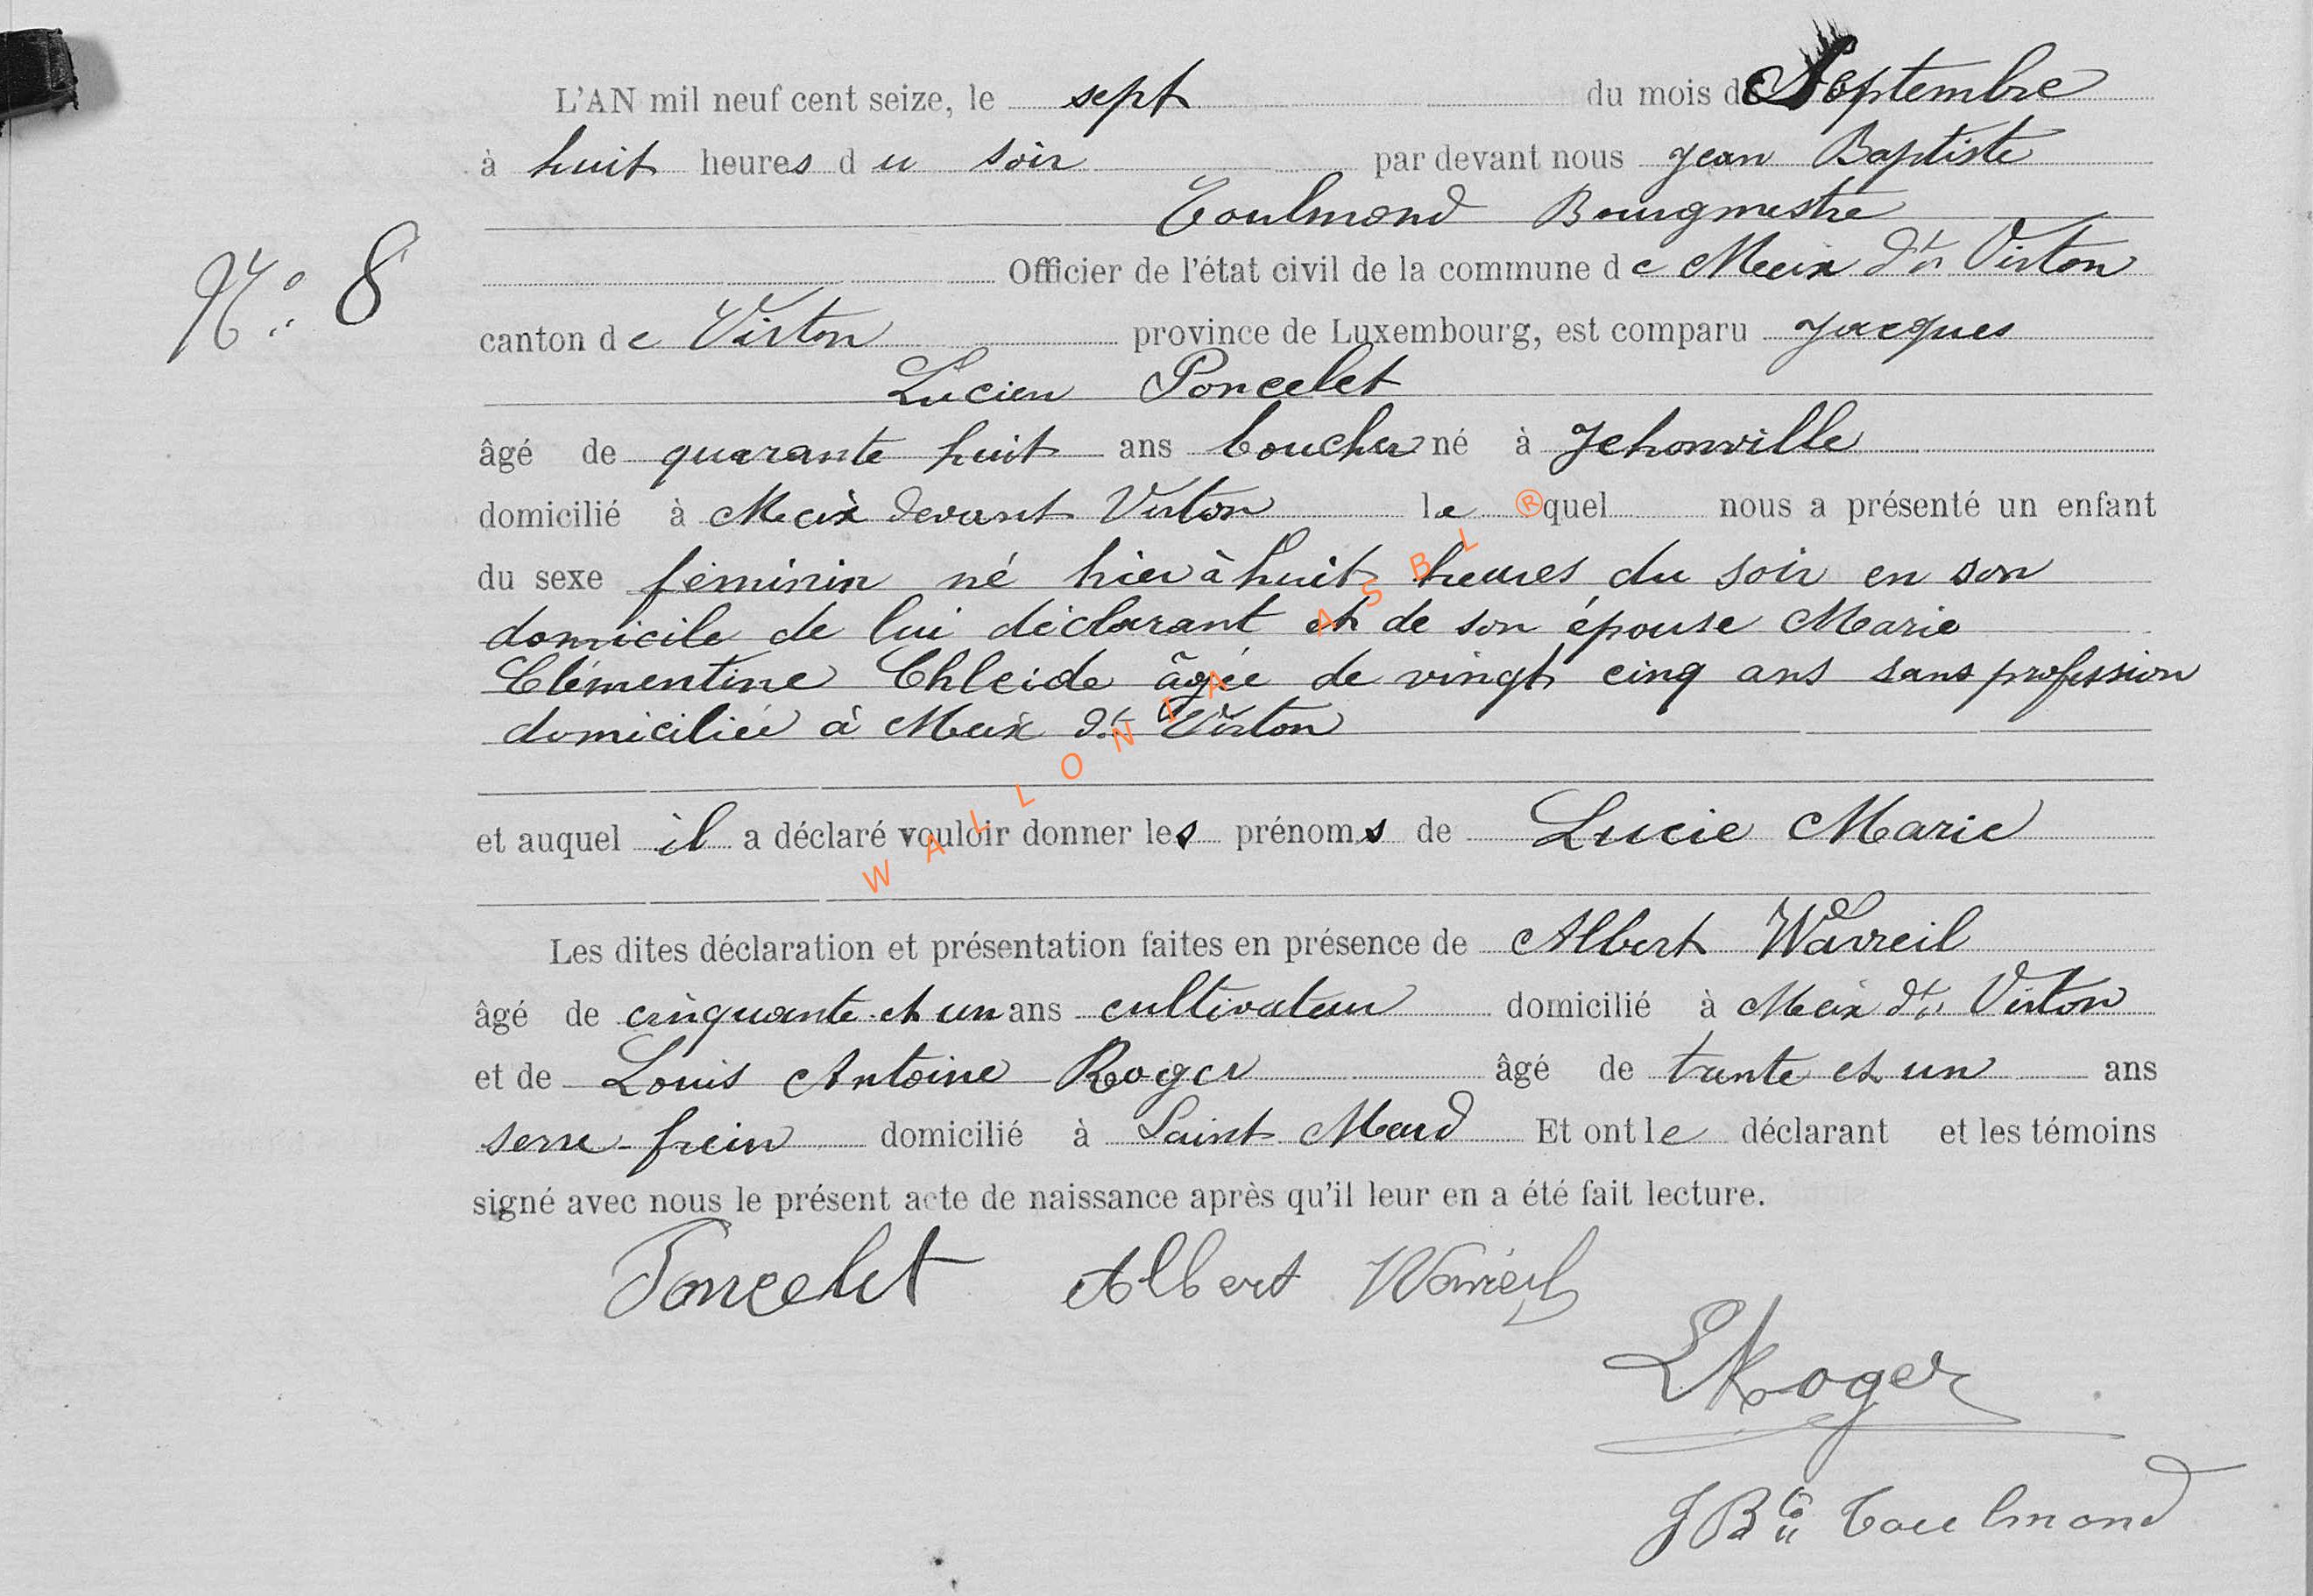 L'AN mil neuf cent seize, le sept du mois de Septembre
à huit heures du soir par devant nous Jean Baptiste
Toulmond Bourgmestre
N° 8
Officier de l'état civil de la commune de Meix dt Virton
canton de Virton province de Luxembourg, est comparu Jacques
Lucien Poncelet
âgé de quarante huit ans boucher né à Jehonville
domicilié à Meix devant Virton lequel nous a présenté un enfant
du sexe féminin né hier à huit heures du soir en son
domicile de lui déclarant et de son épouse Marie
Clémentine Chleide âgée de vingt cinq ans sans profession
domiciliée à Meix dt Virton
et auquel il a déclaré vouloir donner les prénoms de Lucie Marie
Les dites déclaration et présentation faites en présence de Albert Wavreil
âgé de cinquante et un ans cultivateur domicilié à Meix dt Virton
et de Louis Antoine Roger âgé de trente et un ans
serre-frein domicilié à Saint Mard Et ont le déclarant et les témoins
signé avec nous le présent acte de naissance après qu'il leur en a été fait lecture.
Poncelet Albert Wavreil
L Roger
J Bte Toulmond
WALLONIA ASBL ®